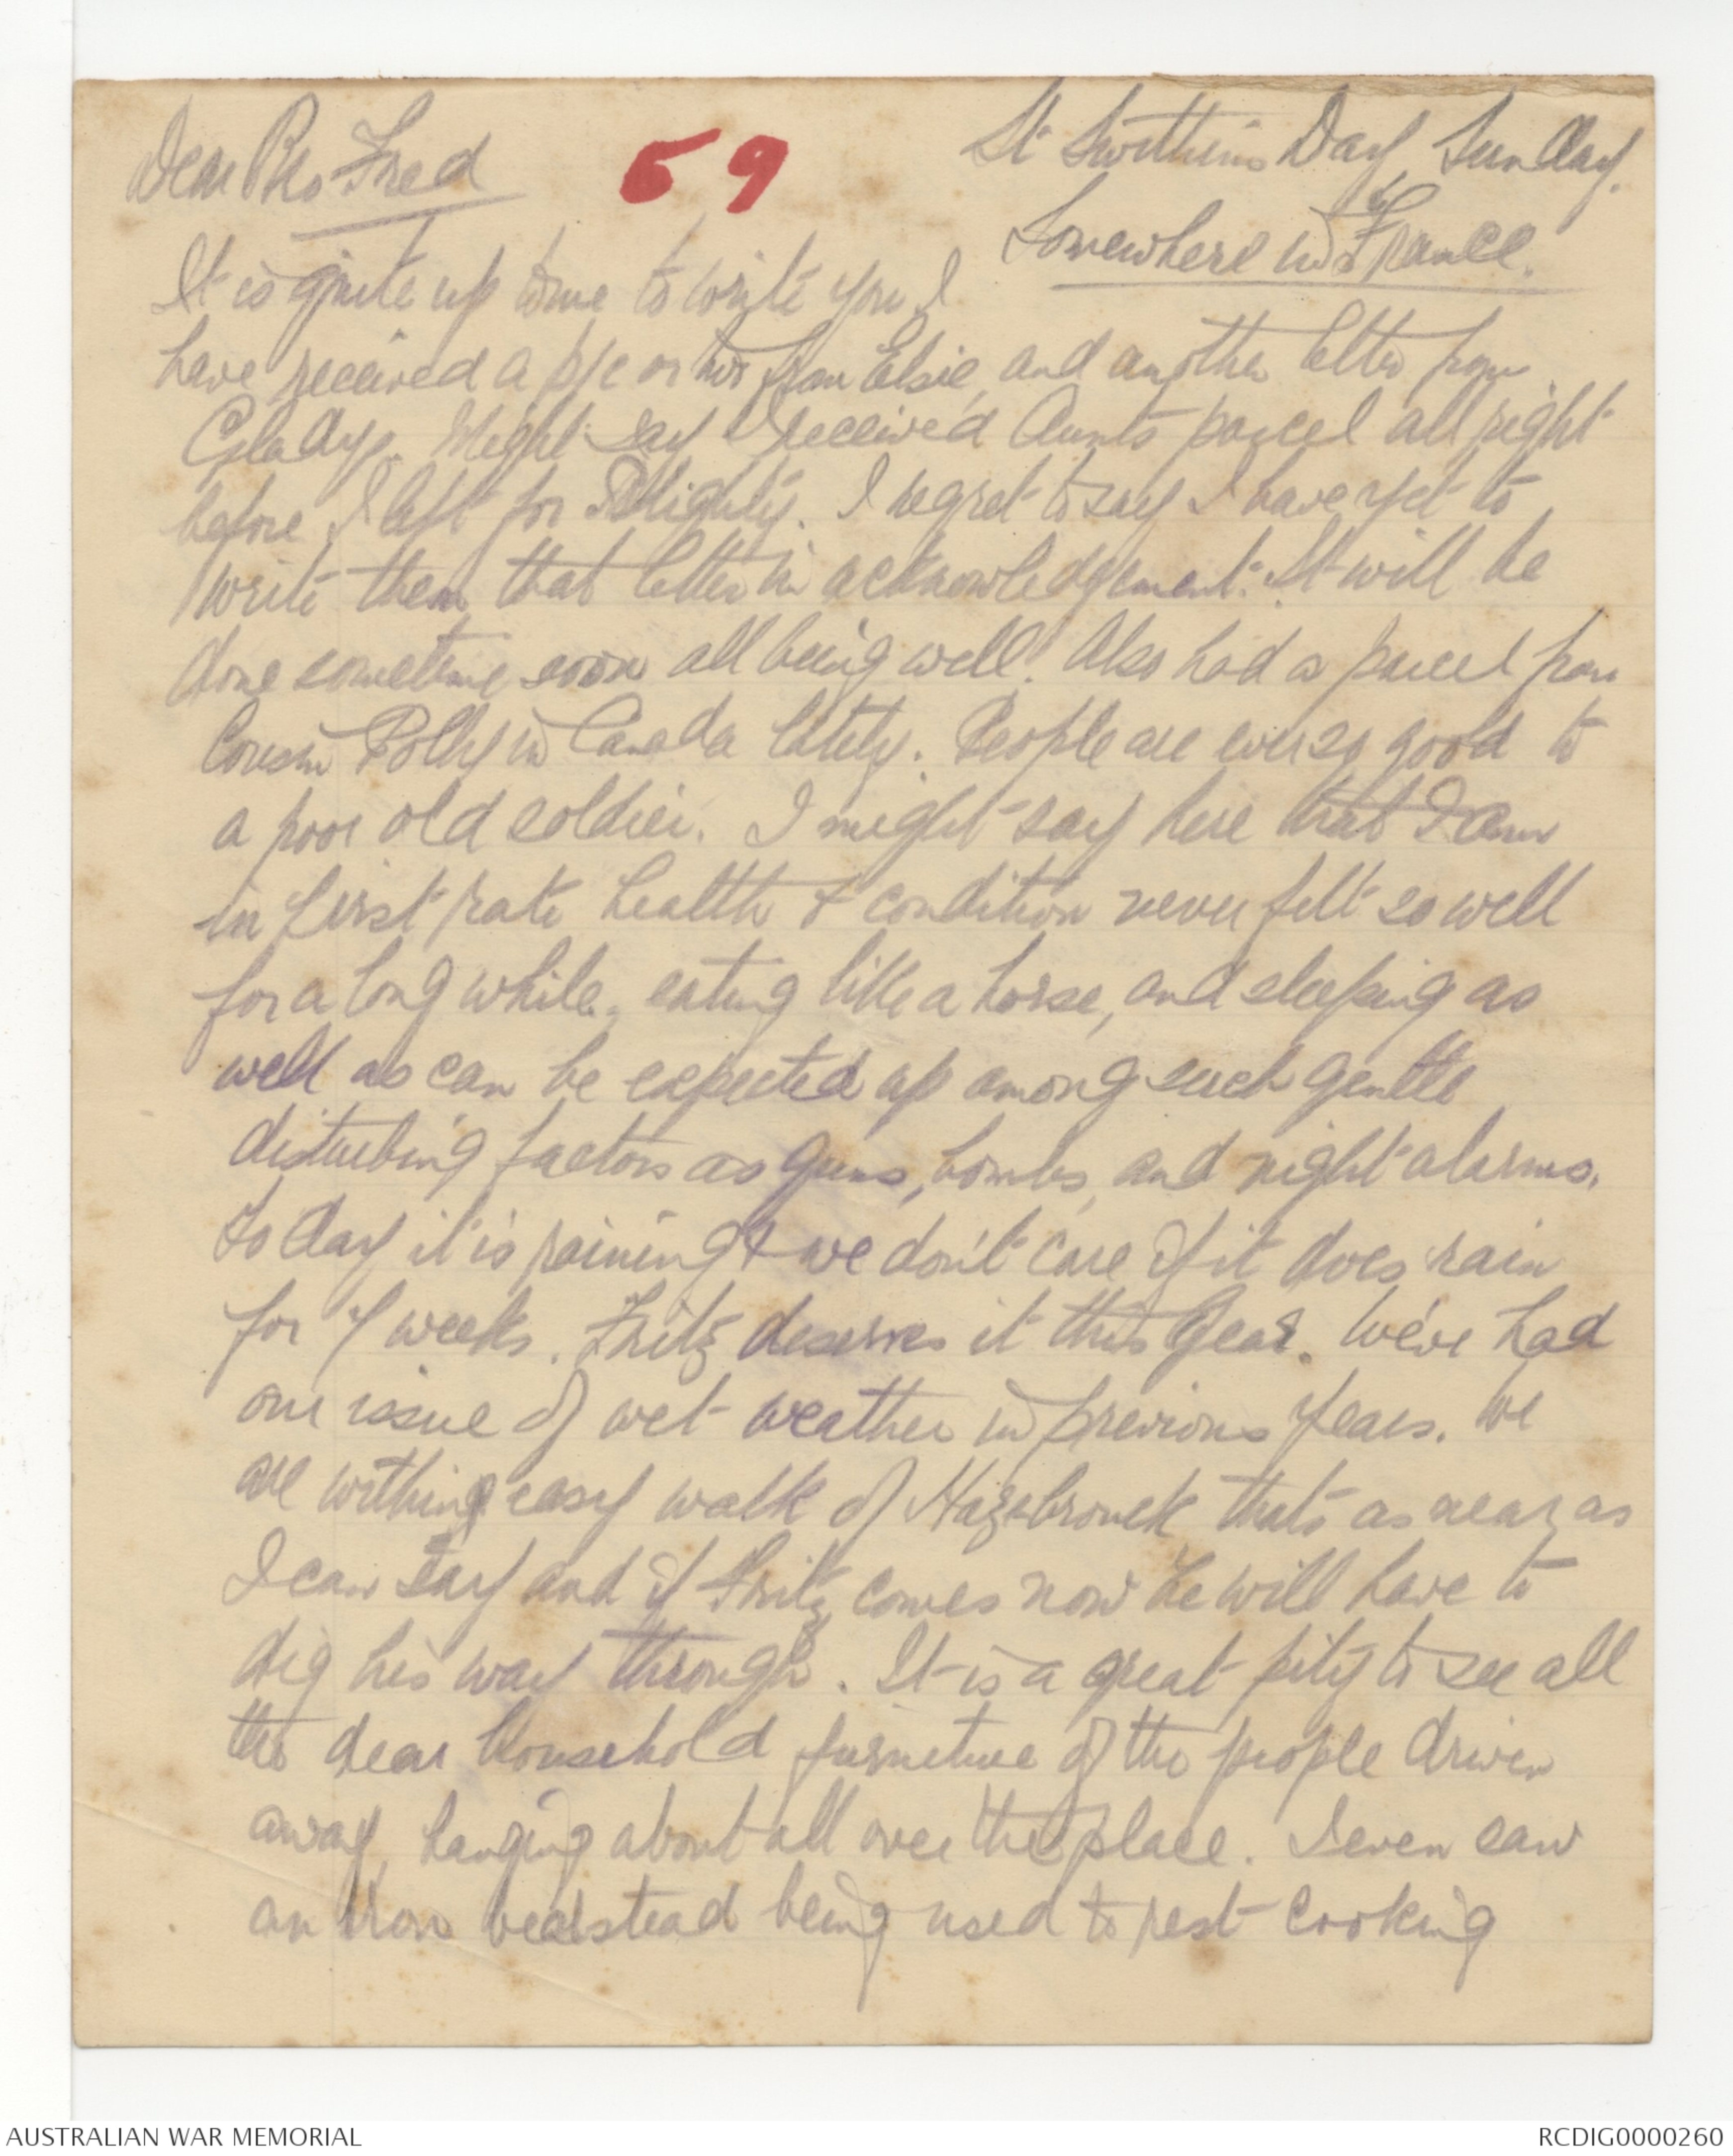 Dear Bro Fred
69
St Swithins Day Sunday.
Somewhere in France.
It is quite up time to write you I
have received a p/c or two from Elsie, and another letter from
Gladys. Might say I received Aunts parcel all right
before I left for Blighty. I regret to say I have yet to
write them that letter in acknowledgement. It will be
done sometime soon all being well! Also had a parcel from
Cousin Polly in Canada lately. People are ever so good to
a poor old soldier. I might say here that I am
in first rate health & condition never felt so well
for a long while, eating like a horse, and sleeping as
well as can be expected up among such gentle
disturbing factors as guns, bombs, and night alarms.
To day it is raining & we don't care if it does rain
for 7 weeks. Fritz deserves it this year. We've had
our issue of wet weather in previous years. We
are within easy walk of Hazebrouck thats as near as
I can say and if Fritz comes now he will have to
dig his way through. It is a great pity to see all
the dear household furniture of the people driven
away, hanging about all over the place. I even saw
an iron bedstead being used to rest cooking
AUSTRALIAN WAR MEMORIAL
RCDIG0000260